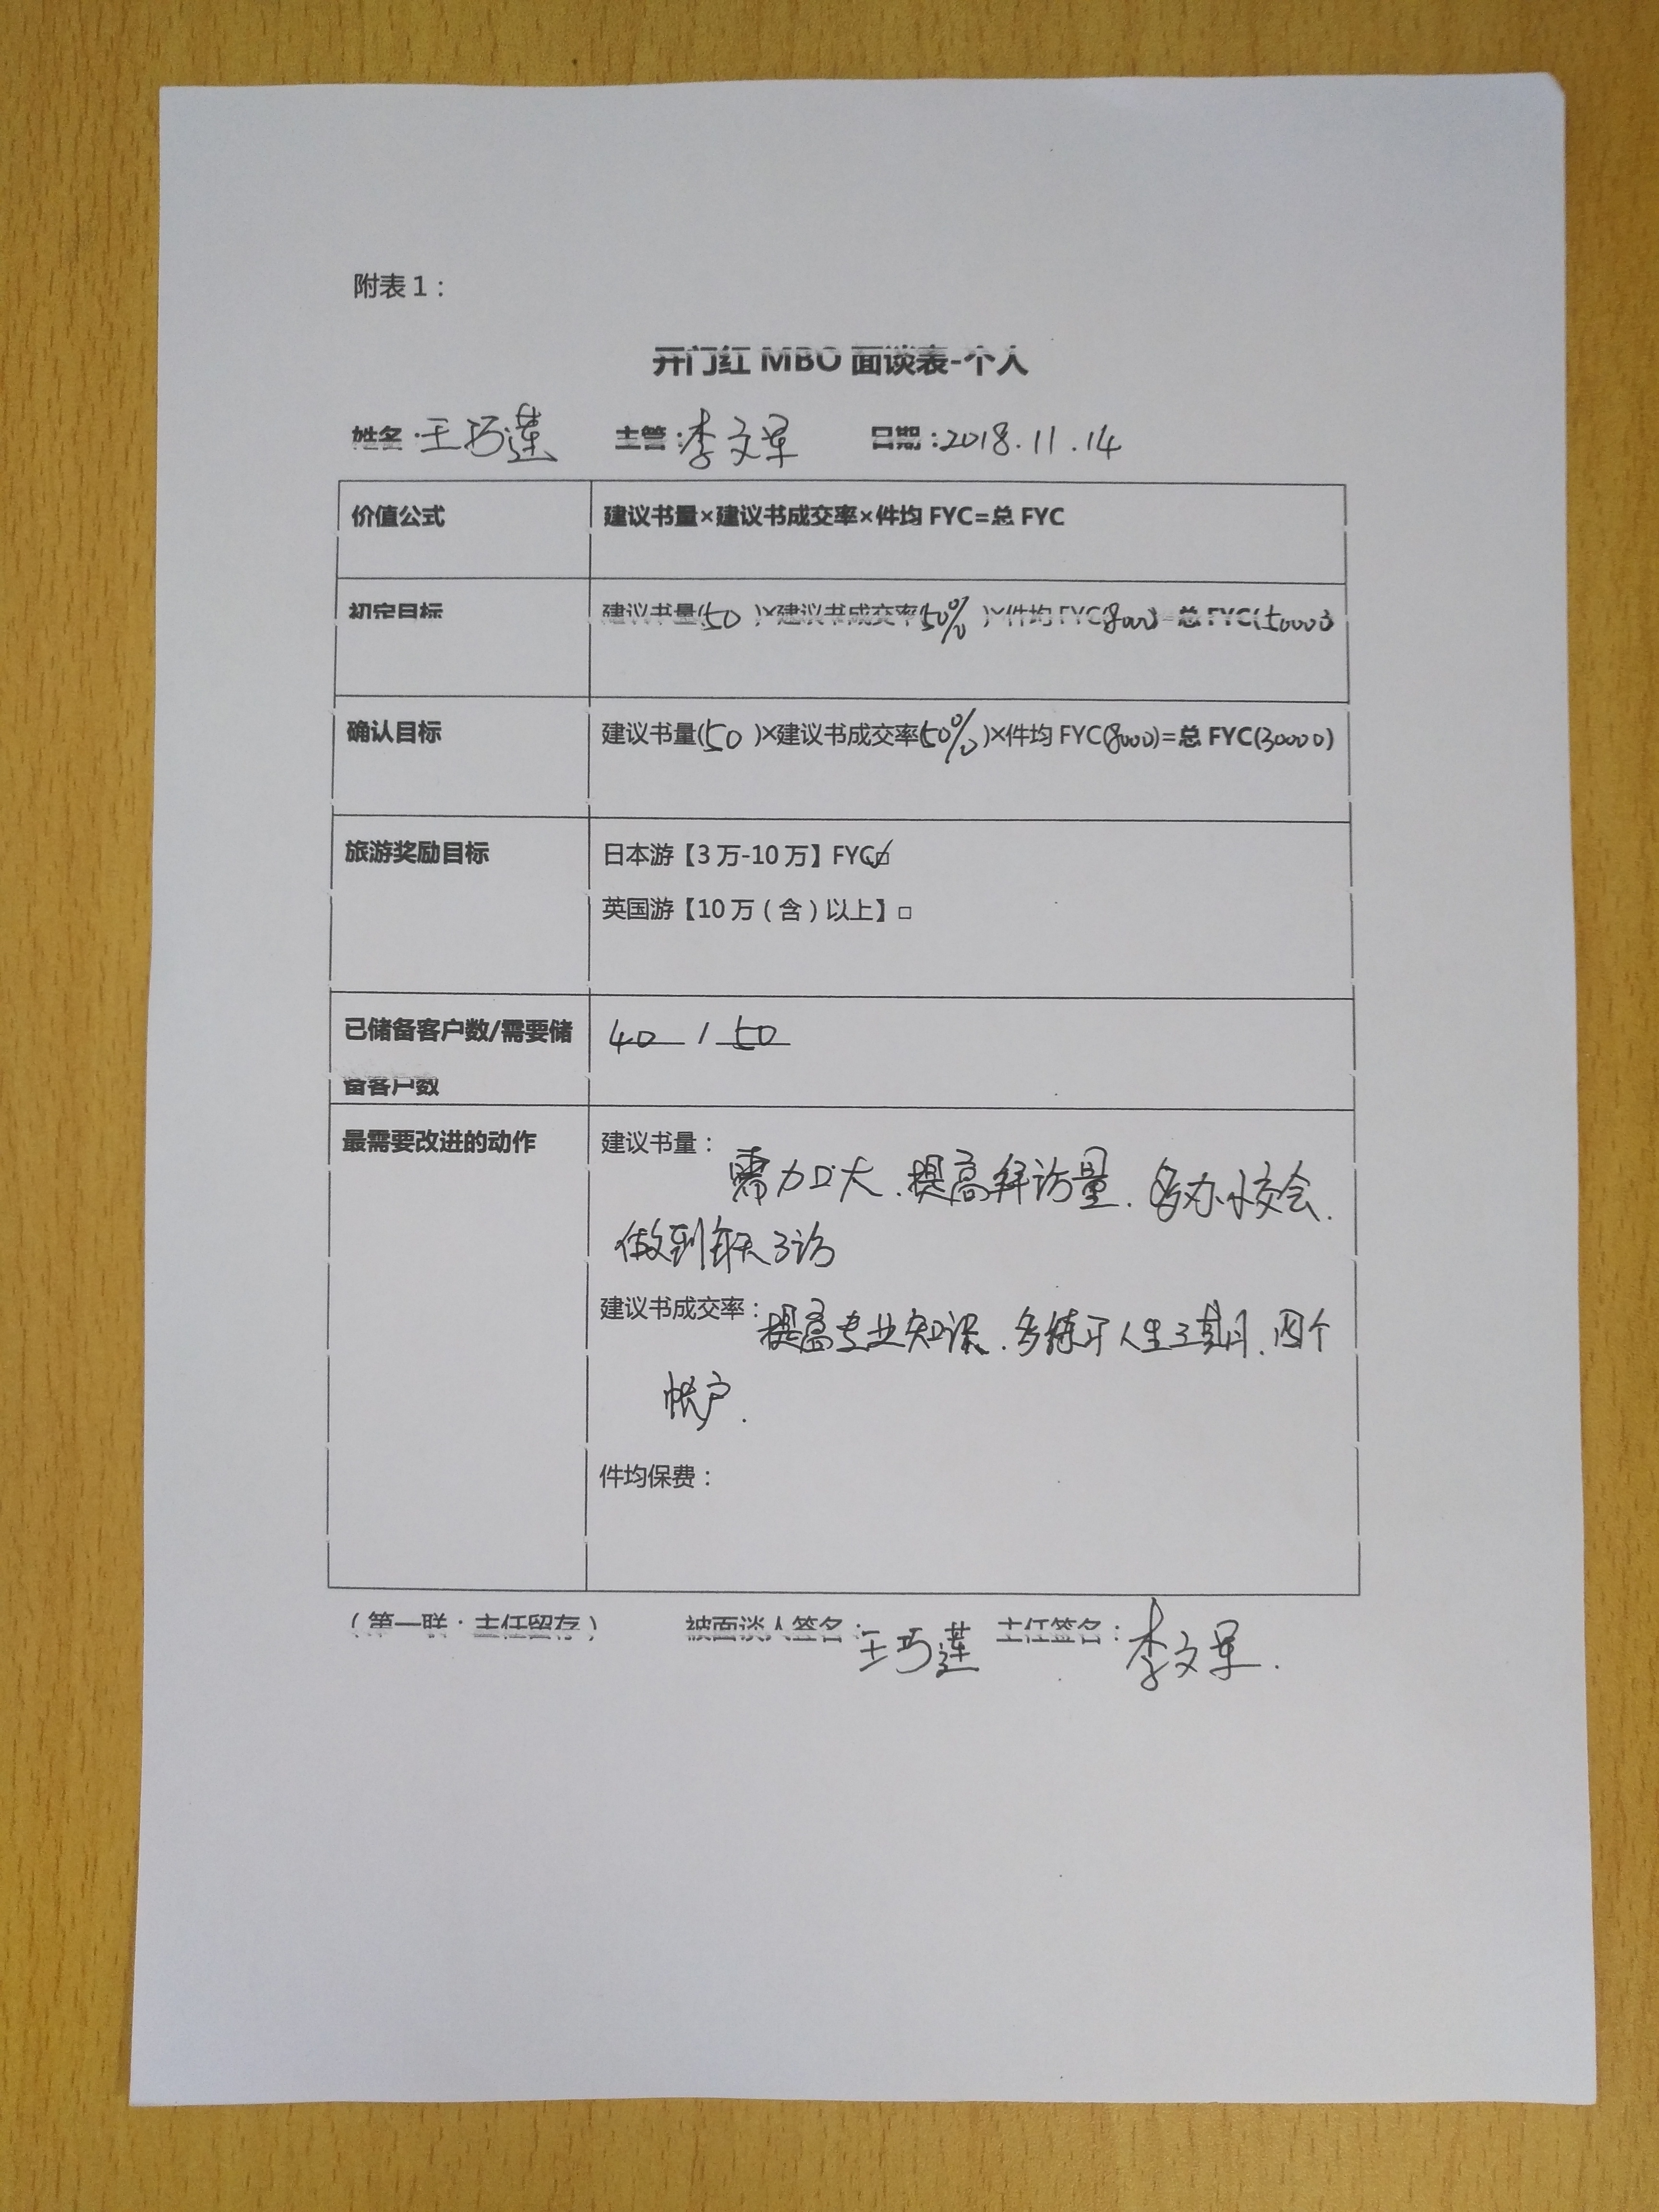 附表1：
开门红 MBO 面谈表-个人
姓名：王巧莲 主管：李文军 日期：2018.11.14
价值公式 建议书量×建议书成交率×件均 FYC=总 FYC
初定目标 建议书量(50 )×建议书成交率(50% )×件均 FYC(8000)=总 FYC(50000)
确认目标 建议书量(50 )×建议书成交率(50% )×件均 FYC(8000)=总 FYC(30000)
旅游奖励目标 日本游【3 万-10 万】FYC☑
英国游【10 万（含）以上】□
已储备客户数/需要储 40 / 50
备客户数
最需要改进的动作 建议书量：
需加大.提高拜访量.多办小交会.
做到每天3访
建议书成交率：提高专业知识.多练习人生三期.四个
帐户.
件均保费：
（第一联：主任留存） 被面谈人签名：王巧莲 主任签名：李文军.